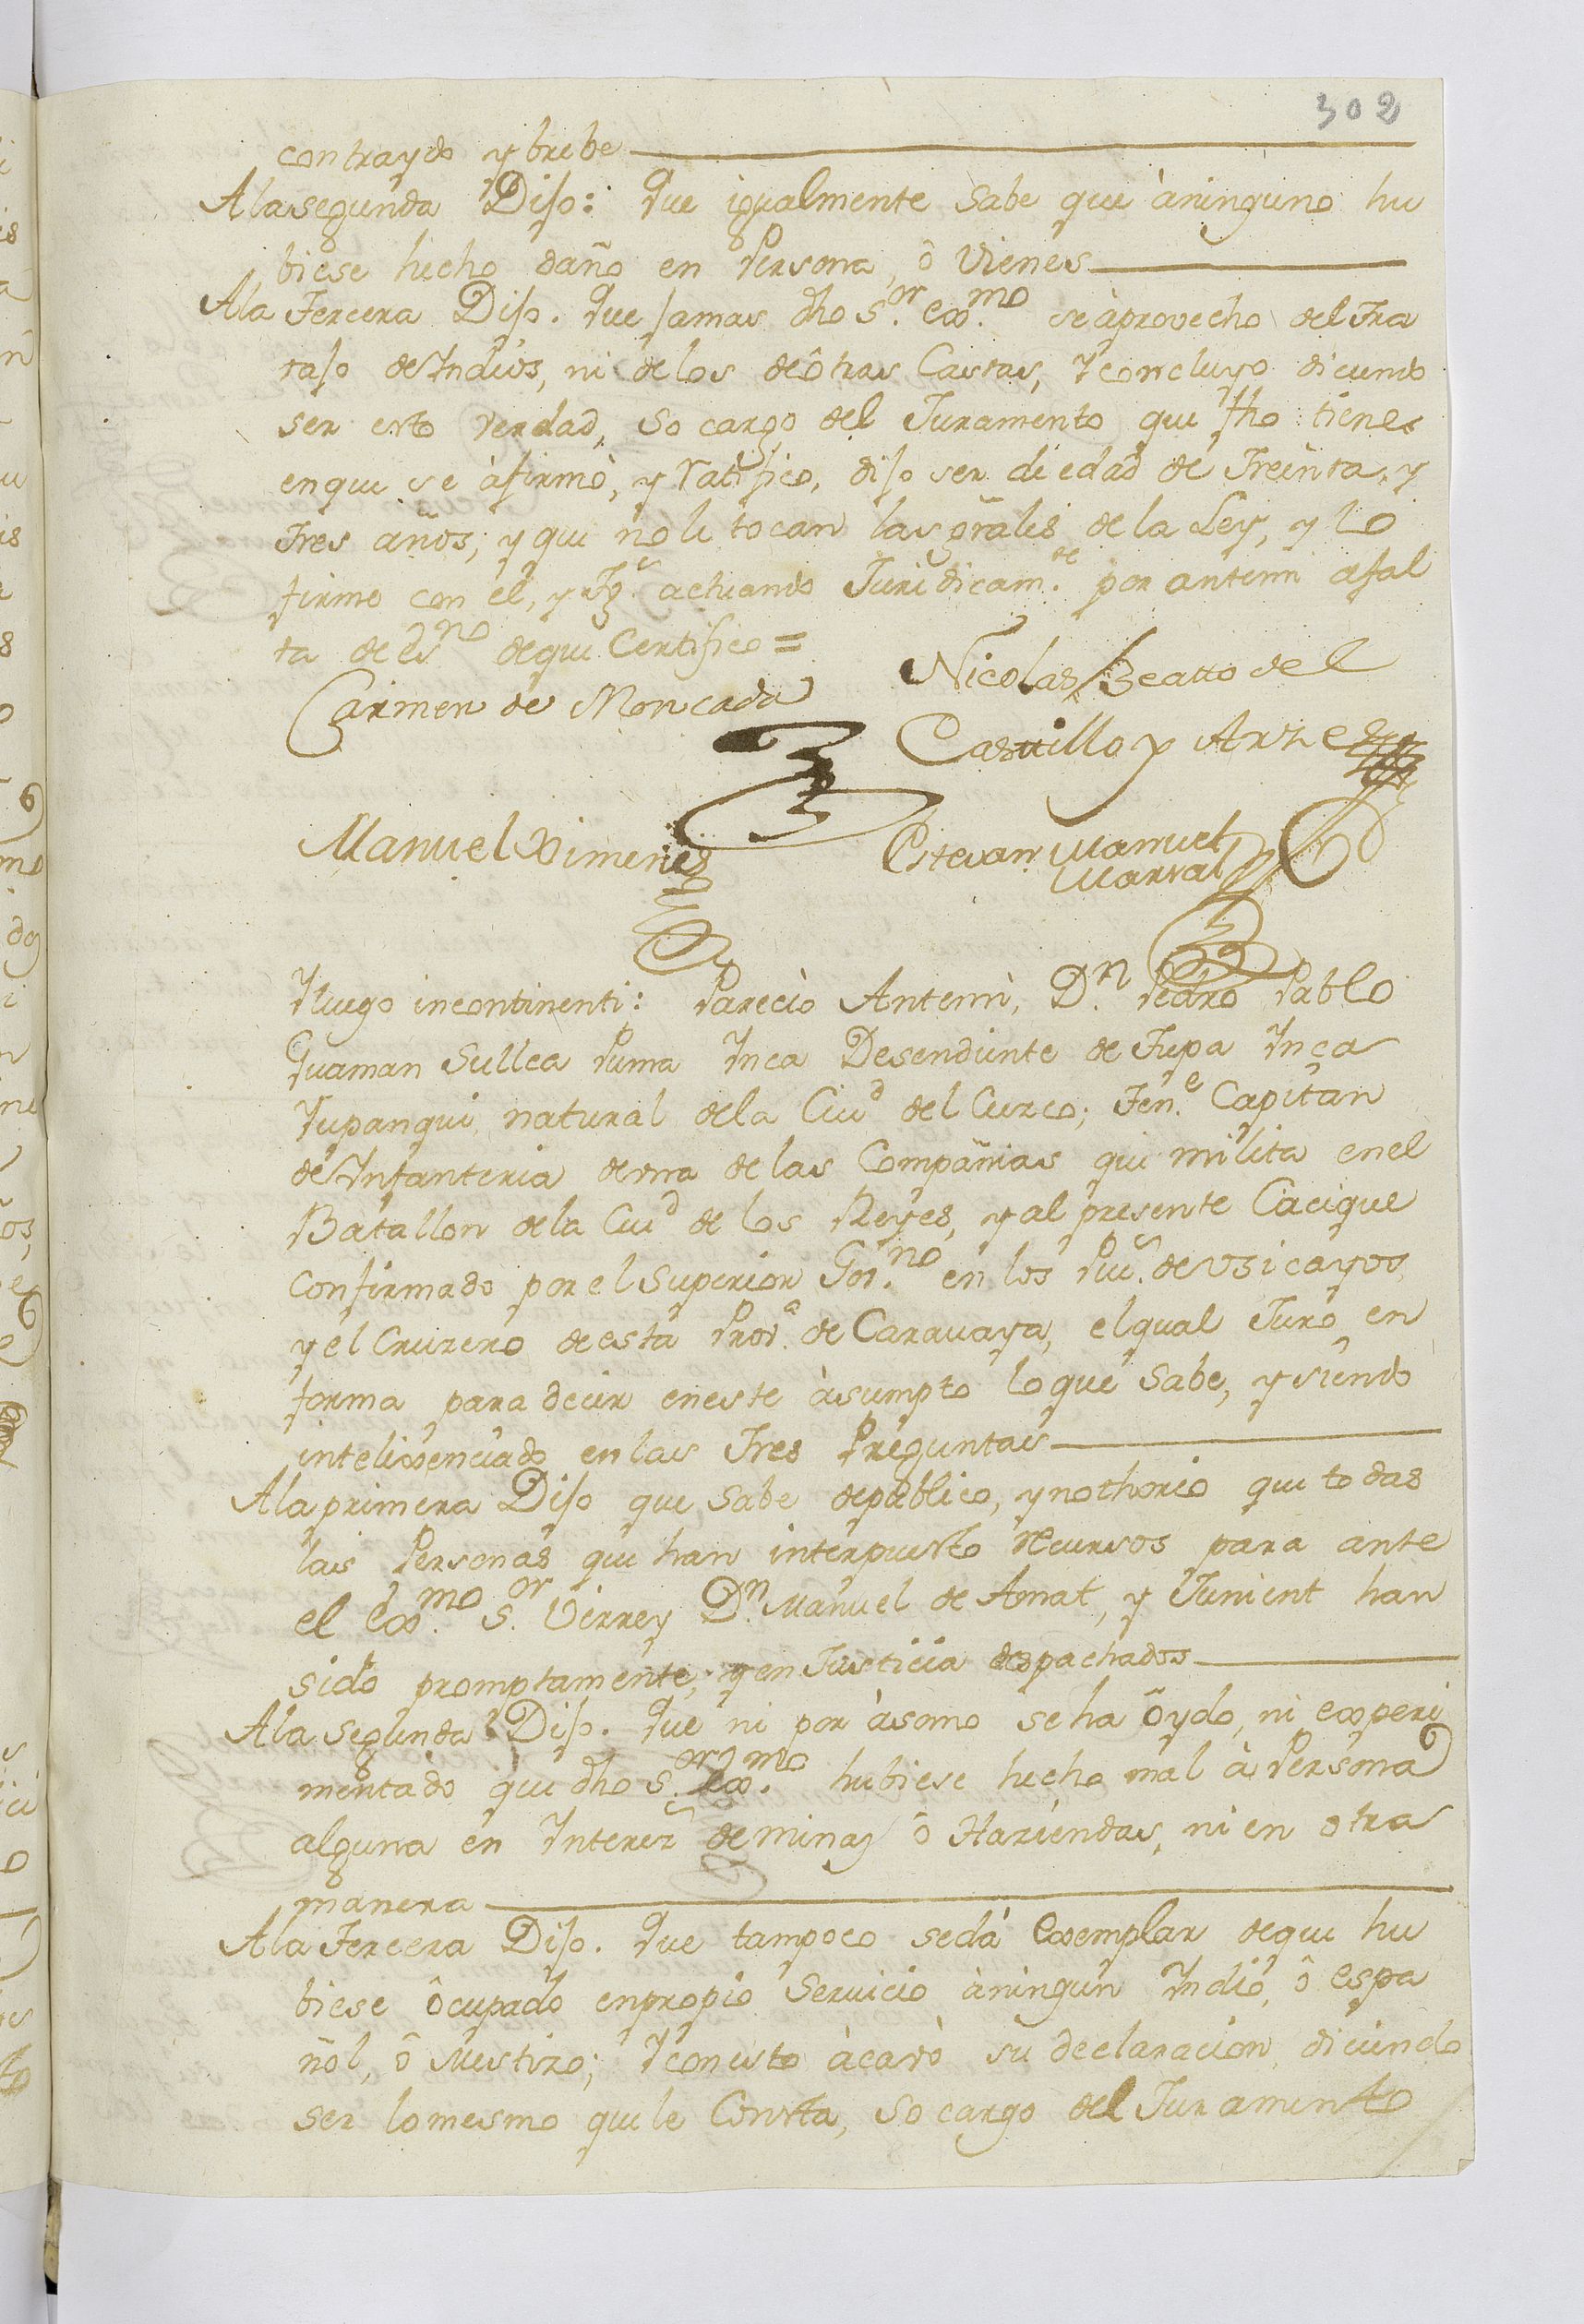 302
contraydo y brebe
A la segunda Dijo: Que igualmente sabe que àninguno hu
biese hecho daño en Persona, ô Vienes
Ala Tercera Dijo. Que jamas dho S.or Exx.mo se àprovecho del Tra
vajo de Yndios, ni de los deôtras Castas, Y concluyo diciendo
ser esto verdad, so cargo del Juramento que fho tiene
enque se àfirmò, y ratifico, dijo ser de edad de Treinta, y
Tres años; y que no le tocan las grãles de la Ley, y lo
firmo con el, y Tg.s actuando Juridicam.te por antemi afal
ta de Es.no deque Certifico =
Nicolas Beatto del
Carimen de Moncada
Castillo y Arze
Manuel Ximenes
Estevan Manuel
Marval
Yluego incontinenti: Pareciò Antemì, D.n Pedro Pablo
Guaman Sullca Puma Ynca Desendiente de Tupa Ynca
Yupanqui, natural dela Ciud del Cuzco; Ten.e Capitan
de Ynfanteria de una de las Compañias que milita en el
Batallon de la Ciud de los Reyes, y al presente Cacique
Confirmado por el Superior Gov.no en los Pue.s de Usicayos
y el Cruzero de esta Prov.a de Caravaya, elqual Juro en
forma para decir eneste àsumpto loque sabe, y siendo
intelixxenciado en las Tres Preguntas
A la primera Dijo que sabe depublico, y nothorio que todas
las Personas que han interpuesto recursos para ante
el Exx.mo S.or Virrey D.n Manuel de Amat, y Junient han
sido promptamente, y en Justicia despachados
A la segunda Dijo. Que ni por àsomo se ha ôydo, ni exxperi
mentado que dho S.or Exx.mo hubiese hecho mal à Persona
alguna en Ynterez de minas ô Haziendas, ni en otra
manera
A la Tercera Dijo. Que tampoco sedà Exxemplar deque hu
biese ôcupado enpropio Servicio àningun Yndio, ô Espa
ñol, ô Mestizo; Y con esto àcavò su declaracion, diciendo
ser lo mesmo que le Consta, so cargo del Juramento